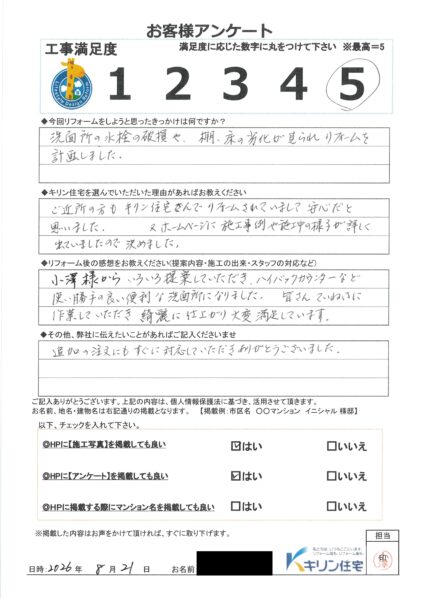 お客様アンケート
工事満足度
満足度に応じた数字に丸をつけて下さい ※最高=5
1 2 3 4 5
◆今回リフォームをしようと思ったきっかけは何ですか?
洗面所の水栓の破損や、棚、床の劣化が見られリフォームを
計画しました.
◆キリン住宅を選んでいただいた理由があればお教えください
ご近所の方も キリン住宅さんでリフォームされていまして 安心だと
思いました. 又ホームページに施工事例や施工中の様子が詳しく
出ていましたので決めました.
◆リフォーム後の感想をお教えください(提案内容・施工の出来・スタッフの対応など)
小澤様から いろいろ提案していただき、ハイバックカウンターなど
使い勝手の良い便利な洗面所になりました. 皆さん ていねいに
作業していただき 綺麗に仕上がり 大変満足しています.
◆その他、弊社に伝えたいことがあればご記入くださいませ
追加の注文にもすぐに対応していただきありがとうございました.
ご記入ありがとうございます。上記の内容は、個人情報保護法に基づき、活用させて頂きます。
お名前、地名・建物名は右記通りの掲載となります。 【掲載例:市区名 〇〇マンション イニシャル 様邸】
以下、チェックを入れて下さい。
◎HPに【施工写真】を掲載しても良い ☑はい □いいえ
◎HPに【アンケート】を掲載しても良い ☑はい □いいえ
◎HPに掲載する際にマンション名を掲載しても良い □はい □いいえ
※掲載した内容はお声をかけて頂ければ、すぐに取り下げます。
担当
日時:2026 年 8 月 21 日 お名前
キリン住宅